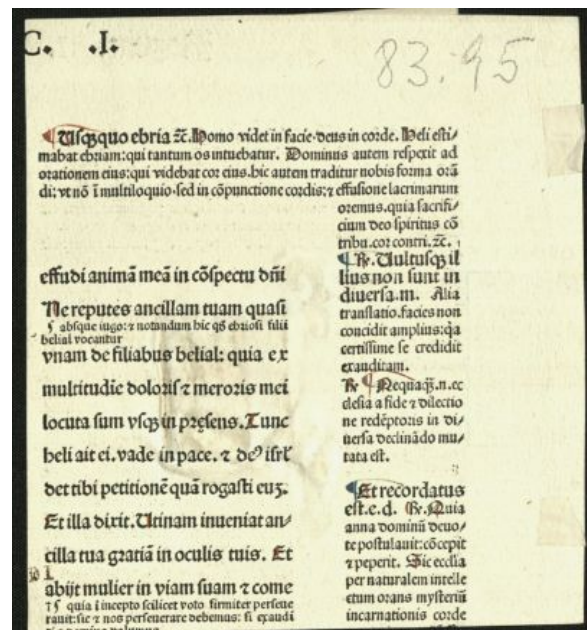 C. .I.
83.95
¶ Usq̃quo ebria ⁊c̃. Homo videt in facie·deus in corde. Heli esti⸗
mabat ebriam:qui tantum os intuebatur. Dominus autem respexit ad
orationem eius:qui videbat cor eius.hic autem traditur nobis forma orã
di:vt nõ ĩ multiloquio·sed in cõpunctione cordis:⁊ effusione lacrimarum
oremus.quia sacrifi⸗
cium deo spiritus cõ
tribu.cor contri.⁊c̃.
¶ R̃. Uultusq̃ il
lius non sunt in
diuersa.m. Alia
translatio.facies non
concidit amplius:q̃a
certissime se credidit
exauditam.
R̃ ¶ Nequaq̃.n.ec
clesia a fide ⁊ dilectio
ne redẽptoris in di⸗
uersa declinãdo mu⸗
tata est.
¶ Et recordatus
est.e.d. R̃. Quia
anna dominũ deuo⸗
te postulauit:cõcepit
⁊ peperit. Sic ecclia
per naturalem intelle
ctum orans mysteriũ
incarnationis corde
effudi animã meã in cõspectu dñi
Ne reputes ancillam tuam quasi
¶ absque iugo:⁊ notandum hic q̃ ebriosi filii
belial vocantur
vnam de filiabus belial: quia ex
multitudĩe doloris ⁊ meroris mei
locuta sum vsq̃ in presens. Tunc
heli ait ei. vade in pace. ⁊ deꝰ isrl̃
det tibi petitionẽ quã rogasti euʒ.
Et illa dixit. Utinam inueniat an⸗
cilla tua gratiã in oculis tuis. Et
abijt mulier in viam suam ⁊ come
¶ quia ĩ incepto scilicet voto firmiter perseue
rauit:sic ⁊ nos perseuerare debemus: si exaudi